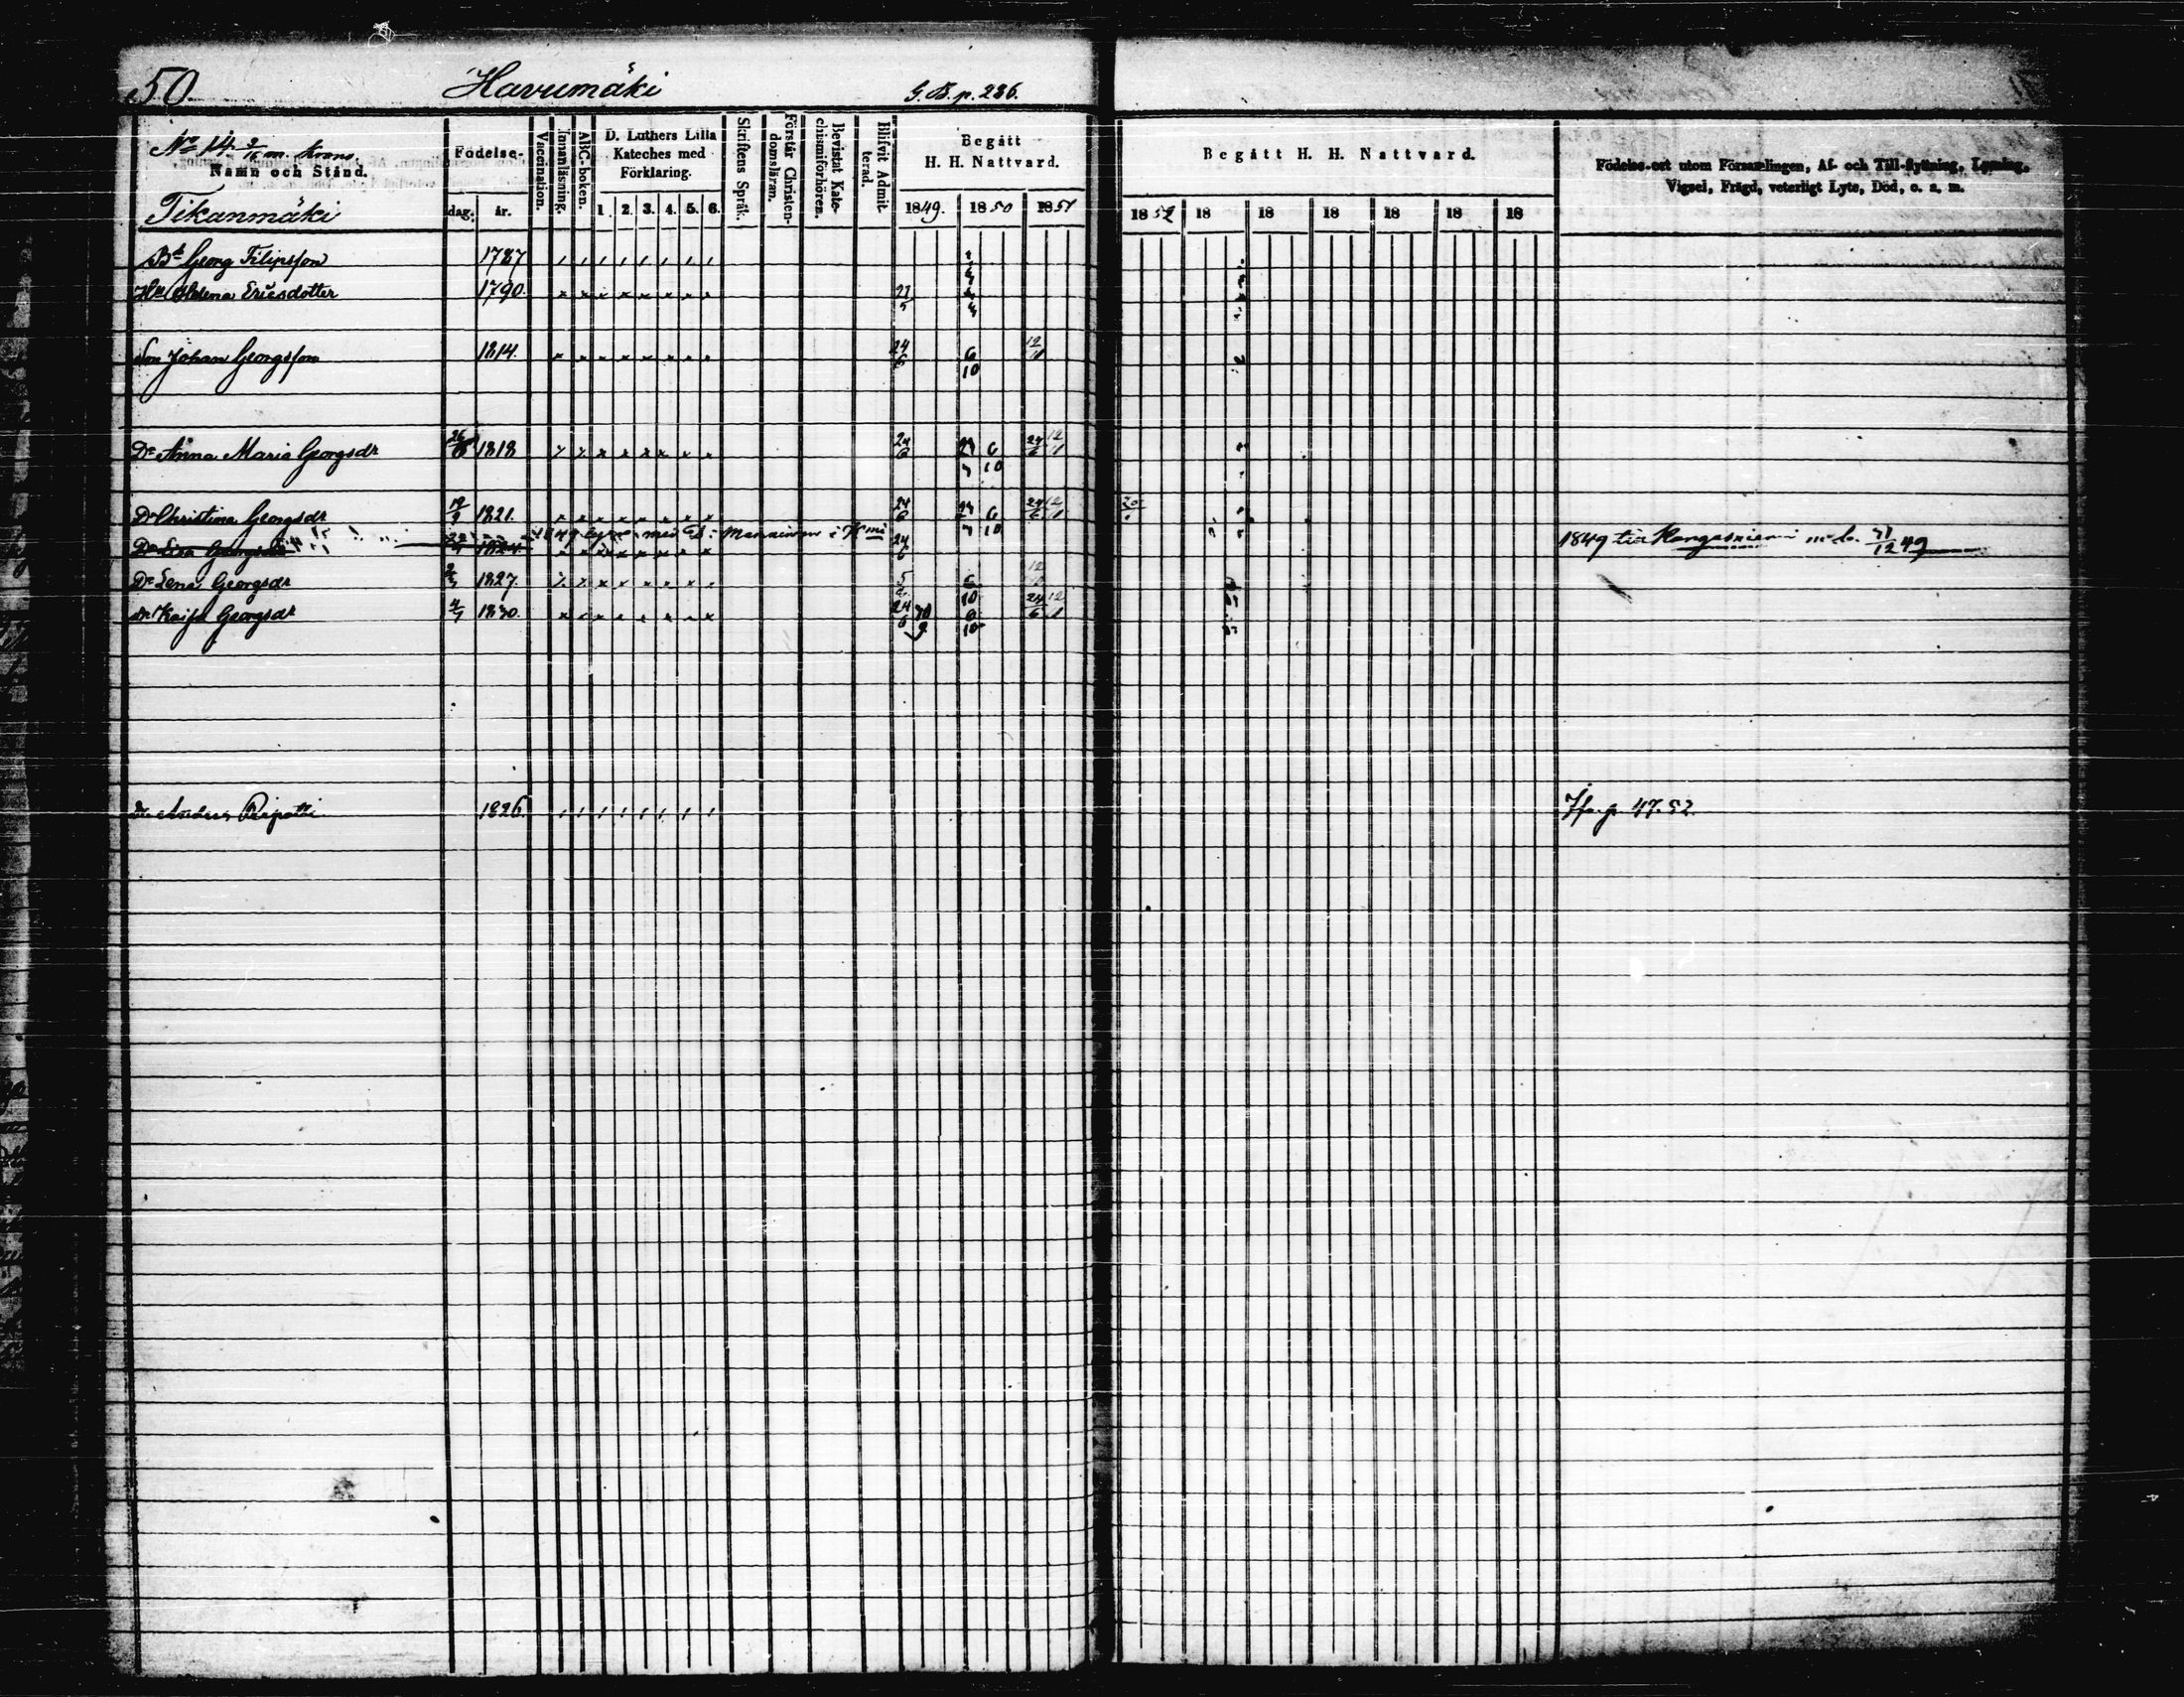 50 Havumäki G.B. p. 286.
No 14 9/16 m. krono
Namn och Stånd.
Tikanmäki
Födelse-
dag. år.
Vaccination.
Innanläsning.
ABC-boken.
D. Luthers Lilla
Kateches med
Förklaring.
1. 2. 3. 4. 5. 6.
Skriftens Språk.
Förstår Christen-
domsläran.
Bevistat Kate-
chismiförhören.
Blifvit Admit-
terad.
Begått
H. H. Nattvard.
1849. 1850 1851
Begått H. H. Nattvard.
1852 18 18 18 18 18 18
Födelse-ort utom Församlingen, Af- och Till-flyttning, Lysning,
Vigsel, Frägd, veterligt Lyte, Död, o. a. m.
Bd Georg Filipsson 1787
Hu Helena Ericsdotter 1790.
Son Johan Georgsson 1814. 24/6 6 12/11
10
Dr Anna Maria Georgsdr 1818 24/6 6 24/6 12/11
10
Dr Christina Georgsdr 19/9 1821. 24/6 6 24/6 12/11
10
Dr Lisa Georgsdr 1824. 24/6 1849 till Kangasniemi 49
Dr Lena Georgsdr 1827. 6
10
dr Kaisa Georgsdr 1830. 24/6 6 24/6 12/11
10
Anders Piipatti 1826. Jfr. p. 47. 52.